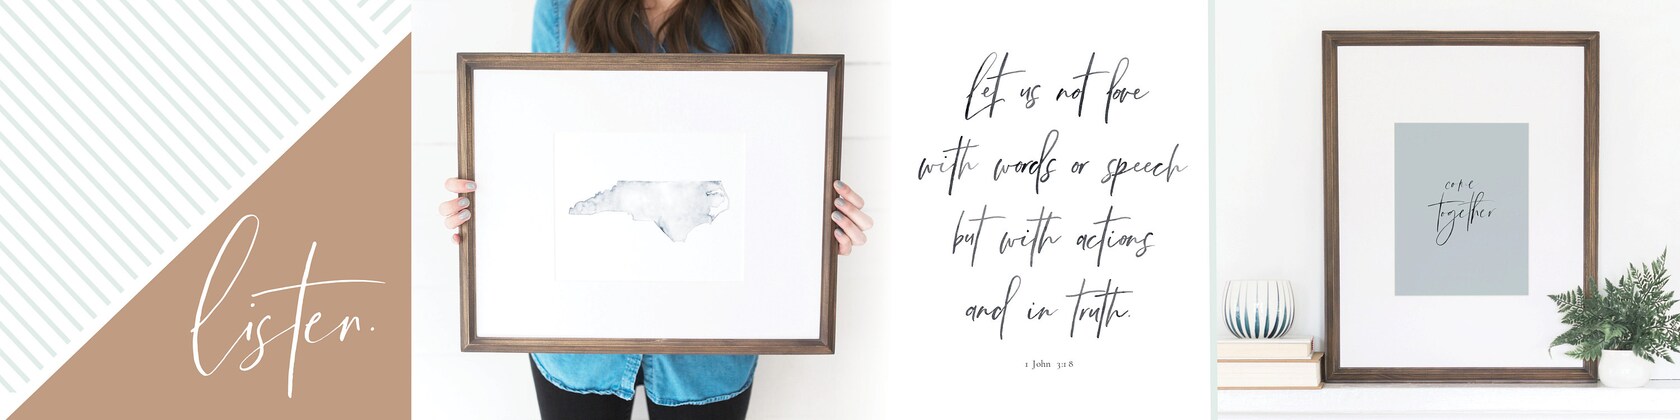 listen.
let us not love
with words or speech
but with actions
and in truth.
1 John 3:18
come
together